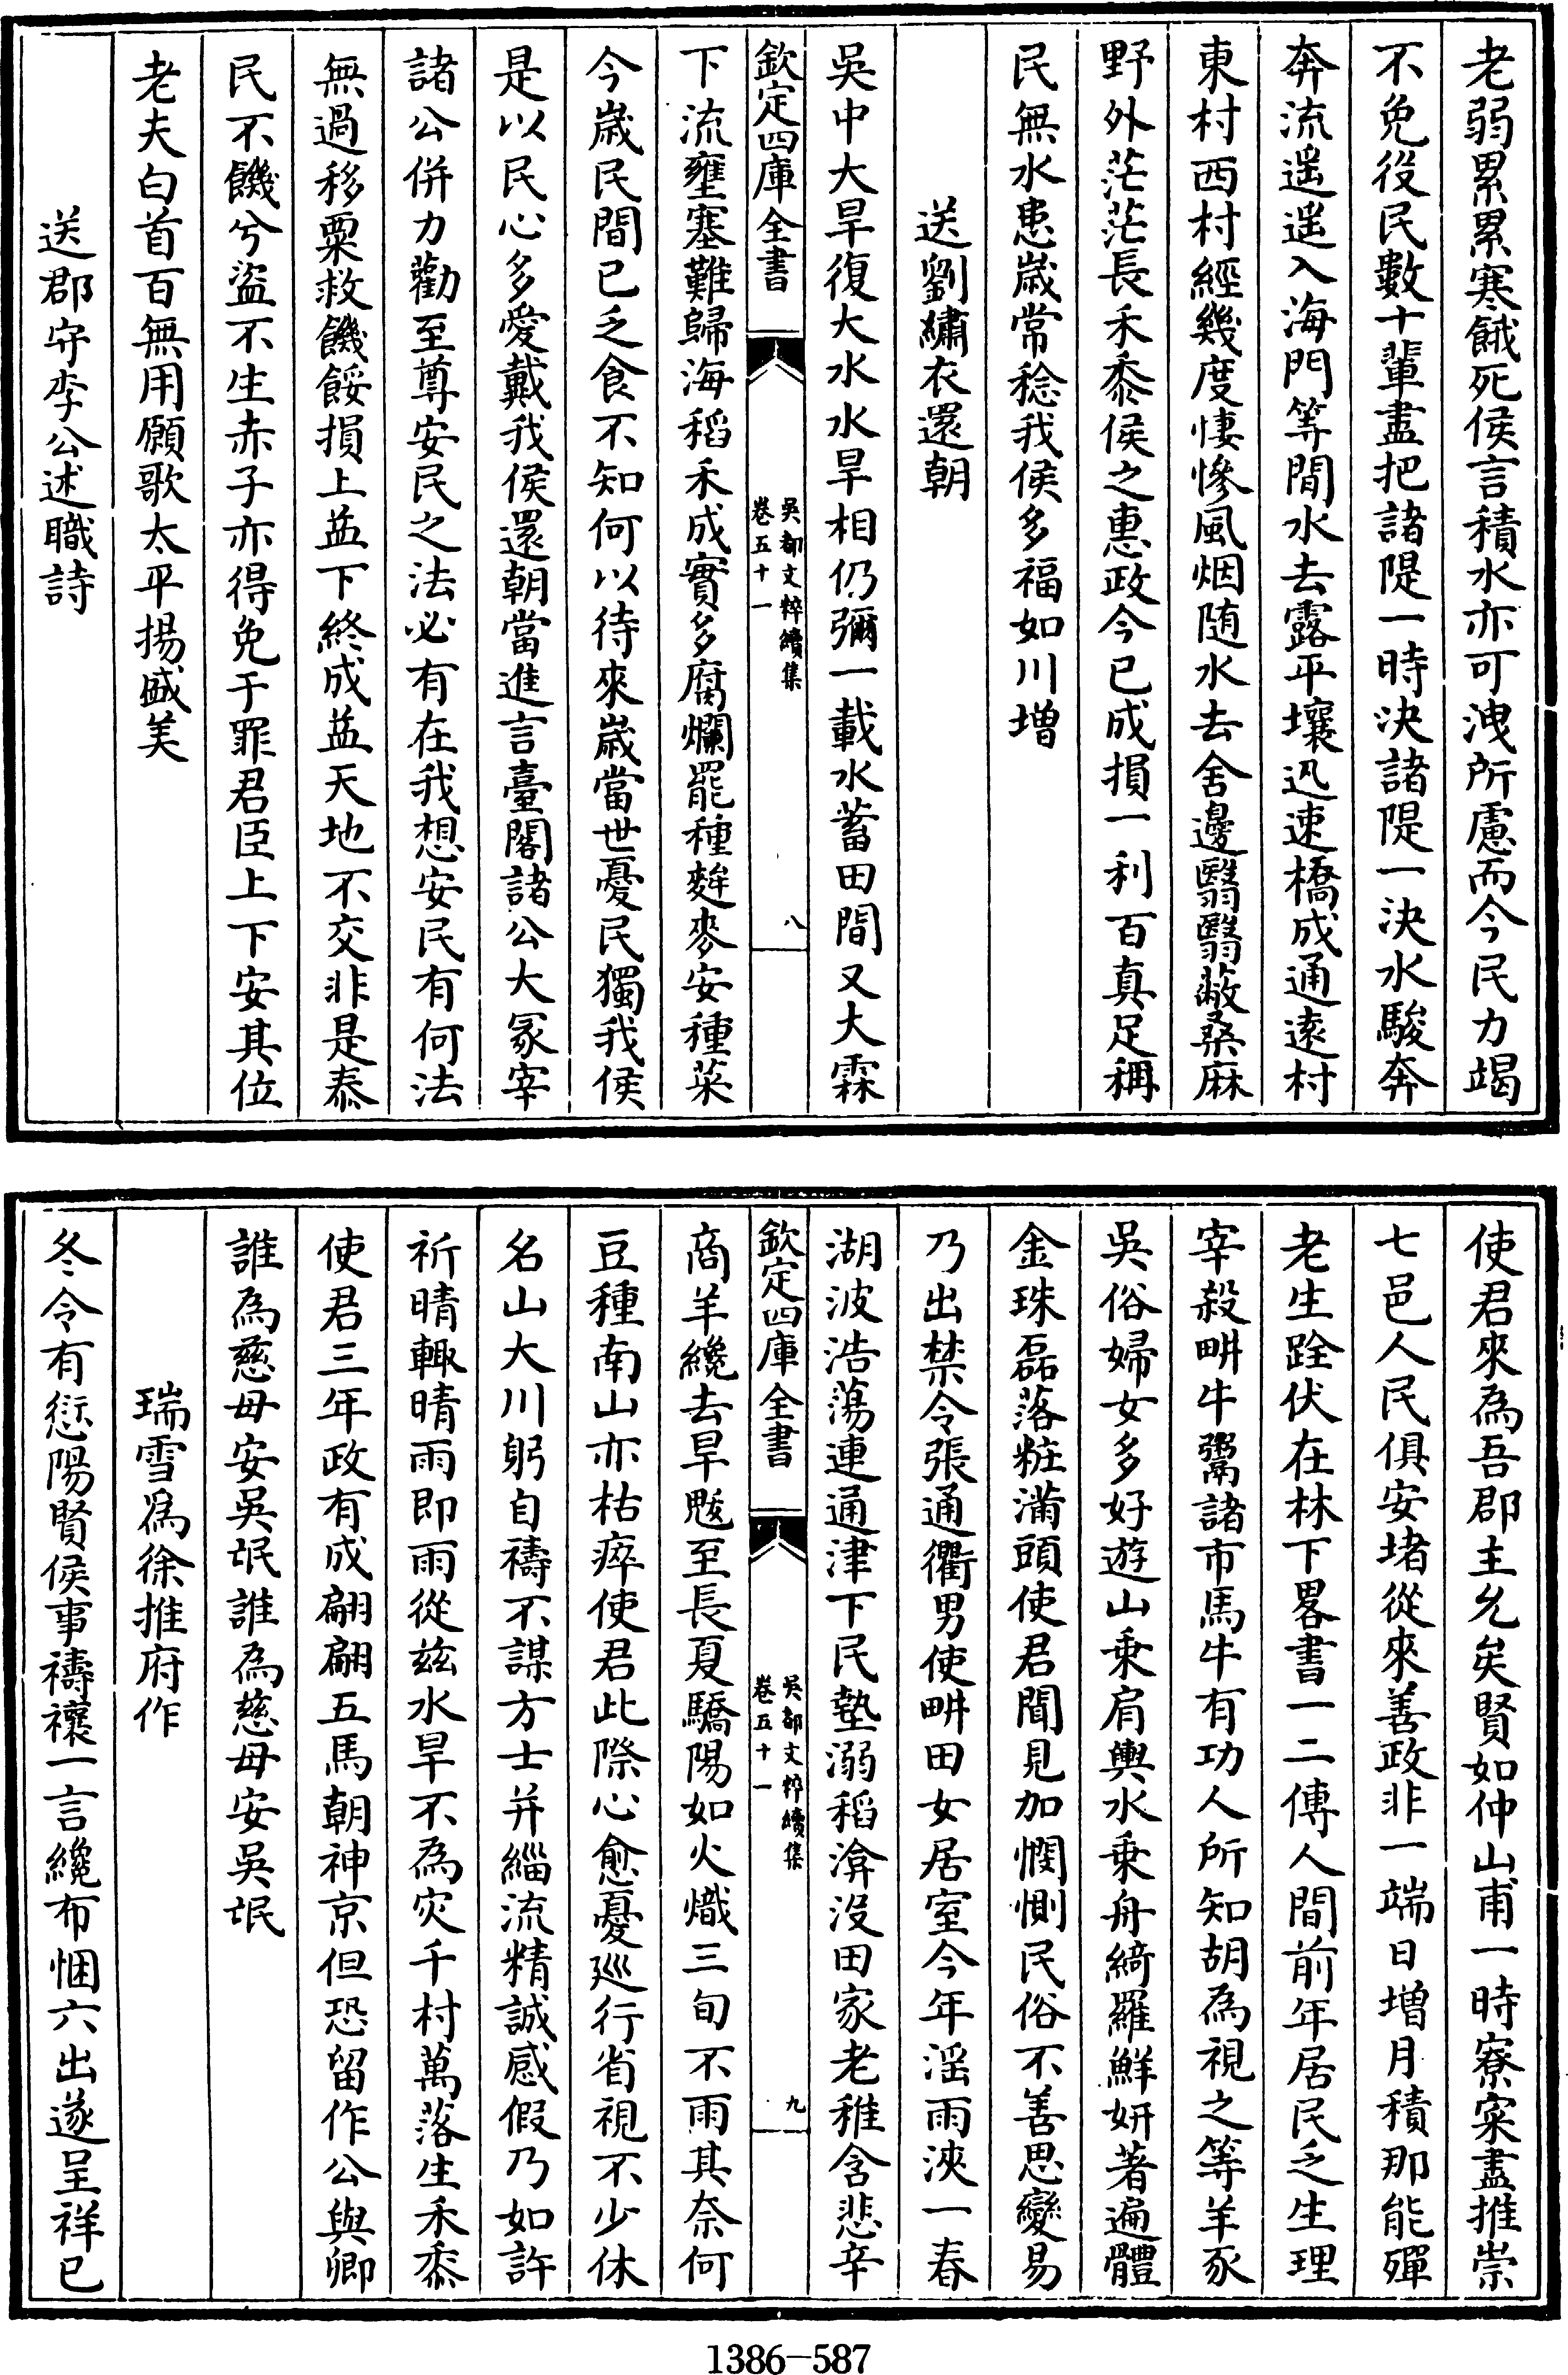 老弱累累寒餓死侯言積水亦可洩所慮而今民力竭
不免役民數十輩盡把諸隄一時決諸隄一決水駿奔
奔流遥遥入海門等閒水去露平壤迅速橋成通逺村
東村西村經幾度悽慘風烟随水去舍邊翳翳蔽桑麻
野外茫茫長禾黍侯之惠政今已成損一利百真足稱
民無水患嵗常稔我侯多福如川增
送劉繡衣還朝
吳中大旱復大水水旱相仍彌一載水蓄田間又大霖
欽定四庫全書
吳都文粹續集
卷五十一
八
下流壅塞難歸海稻禾成實多腐爛罷種麰麥安種菜
今嵗民間已乏食不知何以待來嵗當世憂民獨我侯
是以民心多愛戴我侯還朝當進言臺閣諸公大冢宰
諸公併力勸至尊安民之法必有在我想安民有何法
無過移粟救饑餒損上益下終成益天地不交非是泰
民不饑兮盜不生赤子亦得免于罪君臣上下安其位
老夫白首百無用願歌太平揚盛美
送郡守李公述職詩
使君來為吾郡主允矣賢如仲山甫一時寮寀盡推崇
七邑人民俱安堵從來善政非一端日增月積那能殫
老生跧伏在林下畧書一二傳人間前年居民乏生理
宰殺畊牛鬻諸市馬牛有功人所知胡為視之等羊豕
吳俗婦女多好遊山乘肩輿水乘舟綺羅鮮妍著遍體
金珠磊落粧滿頭使君聞見加憫惻民俗不善思變易
乃出禁令張通衢男使畊田女居室今年滛雨浹一春
湖波浩蕩連通津下民墊溺稻渰沒田家老稚含悲辛
欽定四庫全書
吳都文粹續集
卷五十一
九
商羊纔去旱魃至長夏驕陽如火熾三旬不雨其奈何
豆種南山亦枯瘁使君此際心愈憂廵行省視不少休
名山大川躬自禱不謀方士并緇流精誠感假乃如許
祈晴輙晴雨即雨從兹水旱不為災千村萬落生禾黍
使君三年政有成翩翩五馬朝神京但恐留作公與卿
誰為慈毋安吳氓誰為慈毋安吳氓
瑞雪為徐推府作
冬令有愆陽賢侯事禱禳一言纔布悃六出遂呈祥已
1386-587